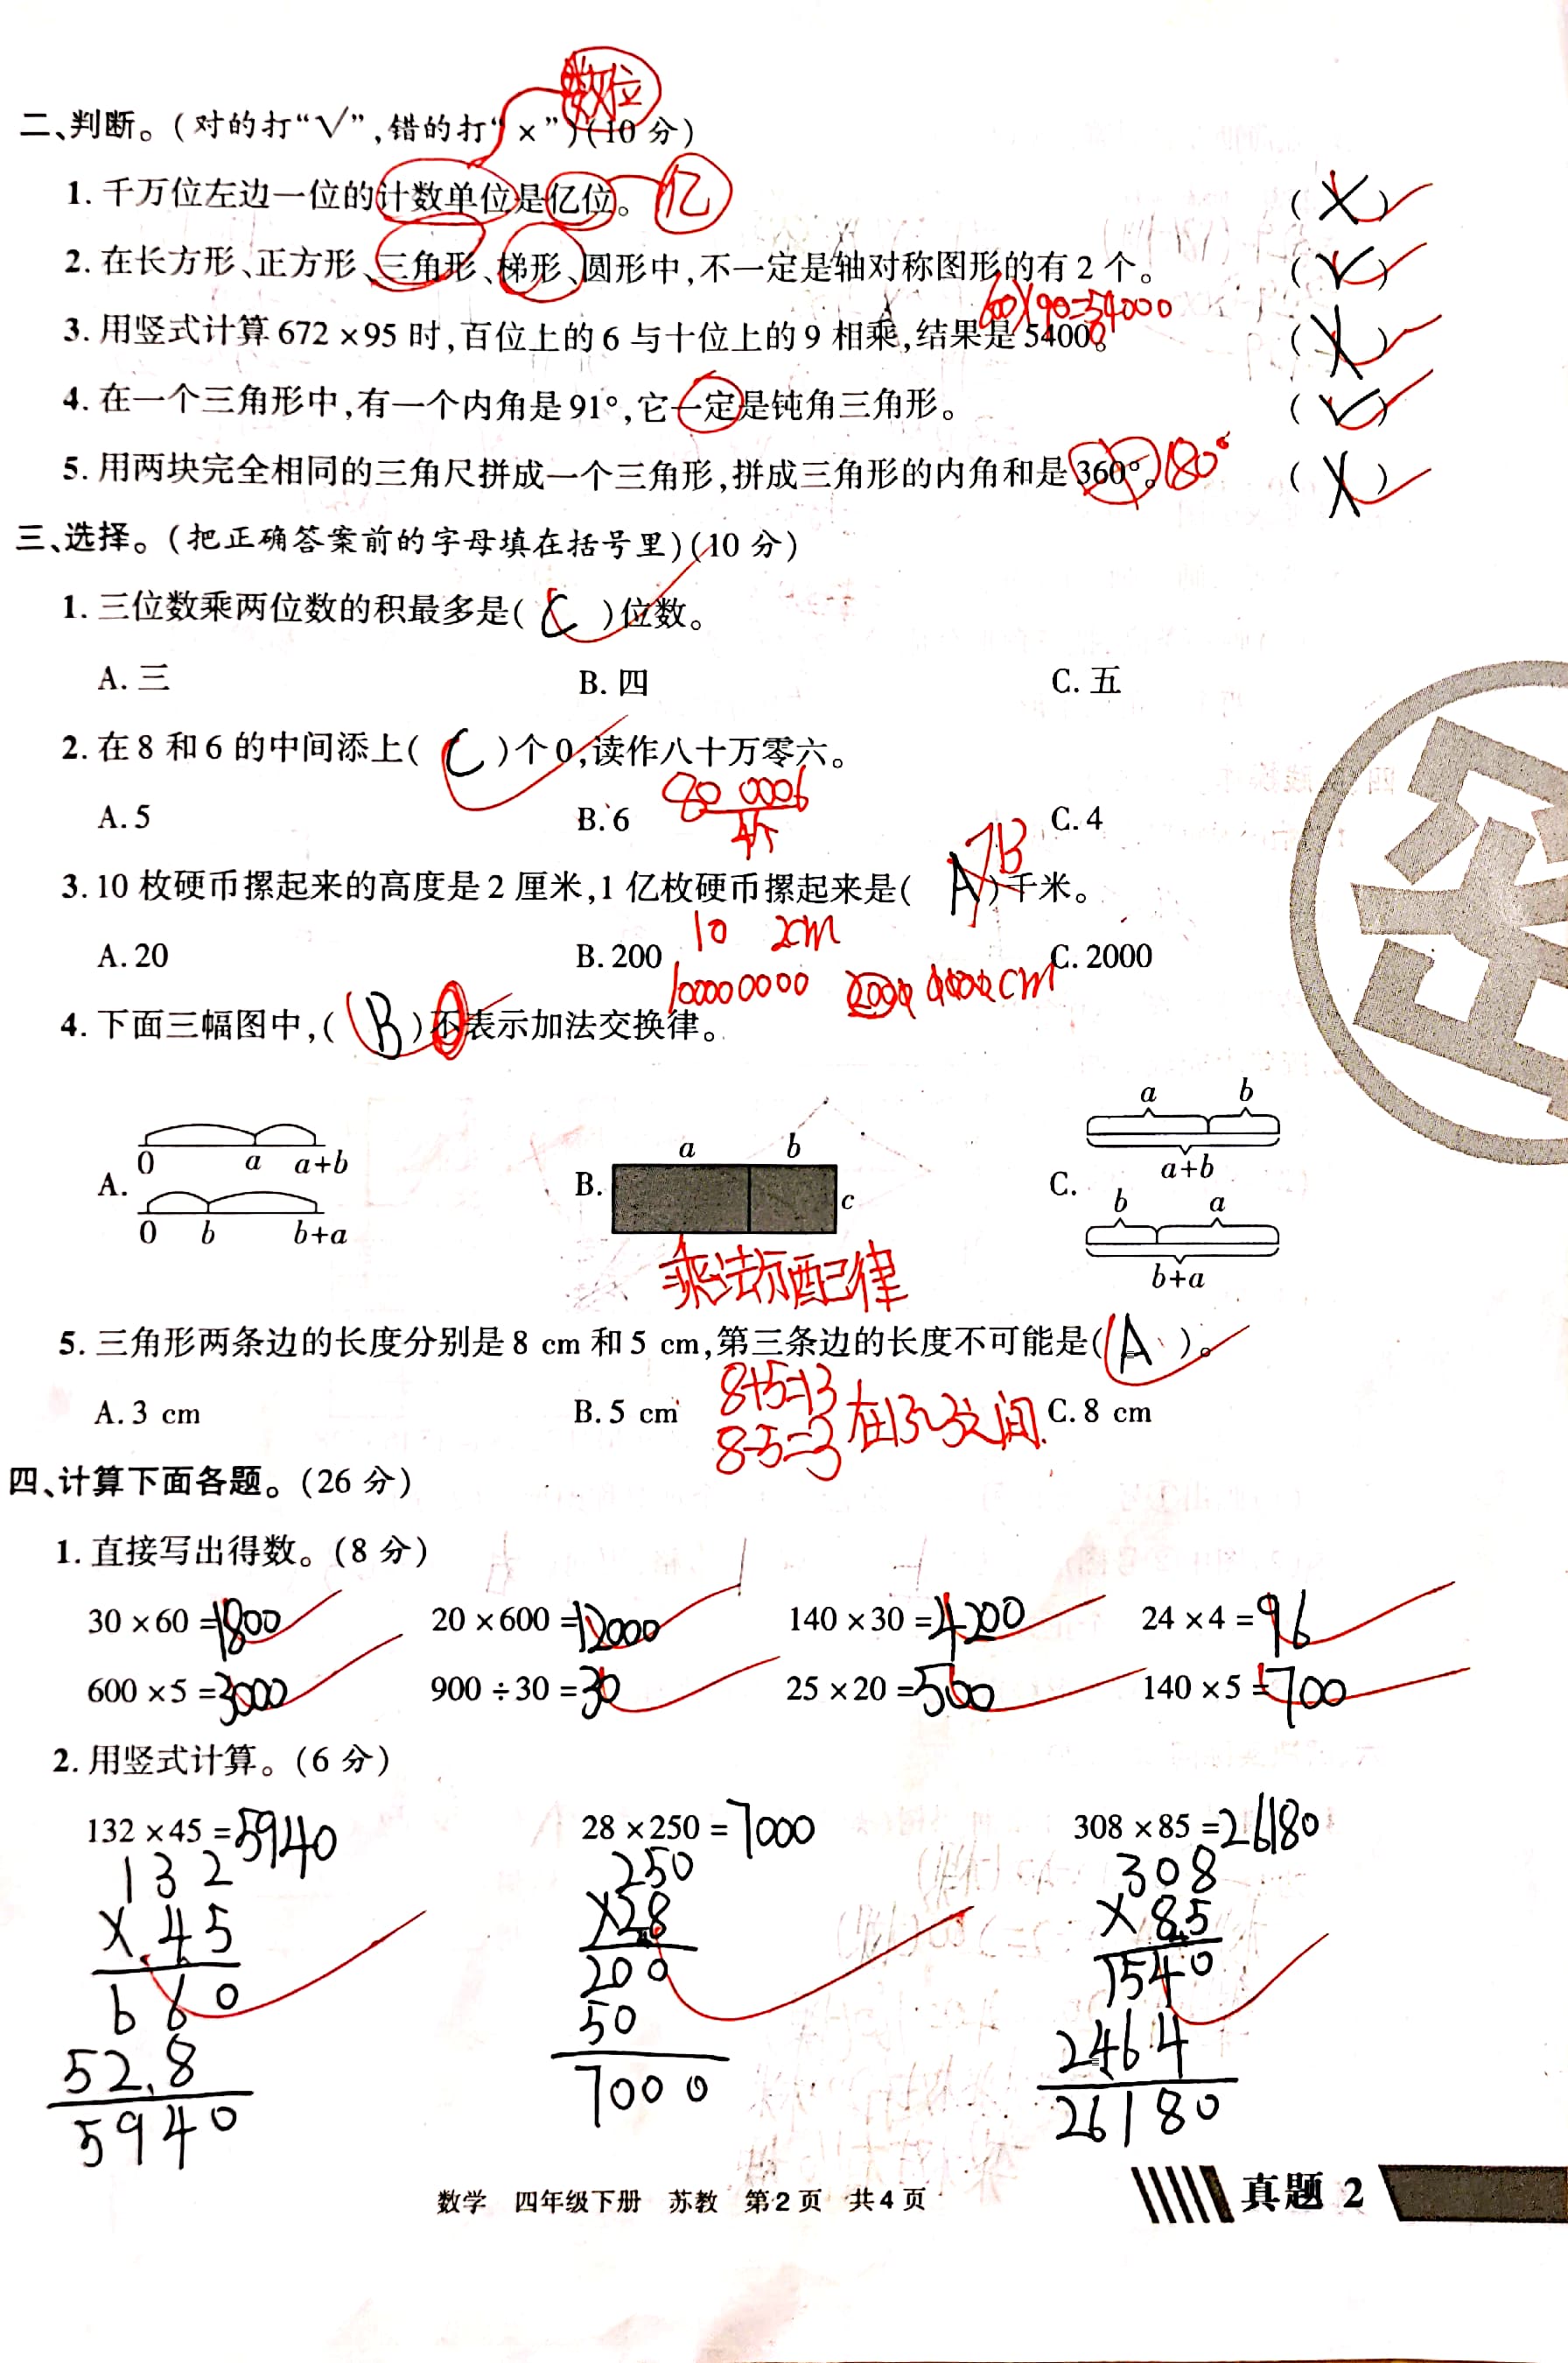 数位
二、判断。(对的打“√”,错的打“×”)(10 分)
1. 千万位左边一位的计数单位是亿位。 亿 (×)
2. 在长方形、正方形、三角形、梯形、圆形中,不一定是轴对称图形的有 2 个。 (√)
600×90=54000
3. 用竖式计算 672×95 时,百位上的 6 与十位上的 9 相乘,结果是 5400。 (×)
4. 在一个三角形中,有一个内角是 91°,它一定是钝角三角形。 (√)
5. 用两块完全相同的三角尺拼成一个三角形,拼成三角形的内角和是 360°。 180° (×)
三、选择。(把正确答案前的字母填在括号里)(10 分)
1. 三位数乘两位数的积最多是( C )位数。
A. 三 B. 四 C. 五
2. 在 8 和 6 的中间添上( C )个 0,读作八十万零六。
A. 5 B. 6 80 0006 C. 4
B
3. 10 枚硬币摞起来的高度是 2 厘米,1 亿枚硬币摞起来是( A )千米。
10 2cm
A. 20 B. 200 C. 2000
100000000 cm
4. 下面三幅图中,( B )不表示加法交换律。
A. 0 a a+b
0 b b+a
B. a b c
乘法分配律
C. a b
a+b
b a
b+a
5. 三角形两条边的长度分别是 8 cm 和 5 cm,第三条边的长度不可能是( A )。
8+5=13
A. 3 cm B. 5 cm 在13~3之间. C. 8 cm
8-5=3
四、计算下面各题。(26 分)
1. 直接写出得数。(8 分)
30×60=1800 20×600=12000 140×30=4200 24×4=96
600×5=3000 900÷30=30 25×20=500 140×5=700
2. 用竖式计算。(6 分)
132×45=5940 28×250=7000 308×85=26180
132 250 308
×45 ×28 ×85
660 200 0 1540
528 50 2464
5940 7000 26180
数学 四年级下册 苏教 第2页 共4页
真题 2